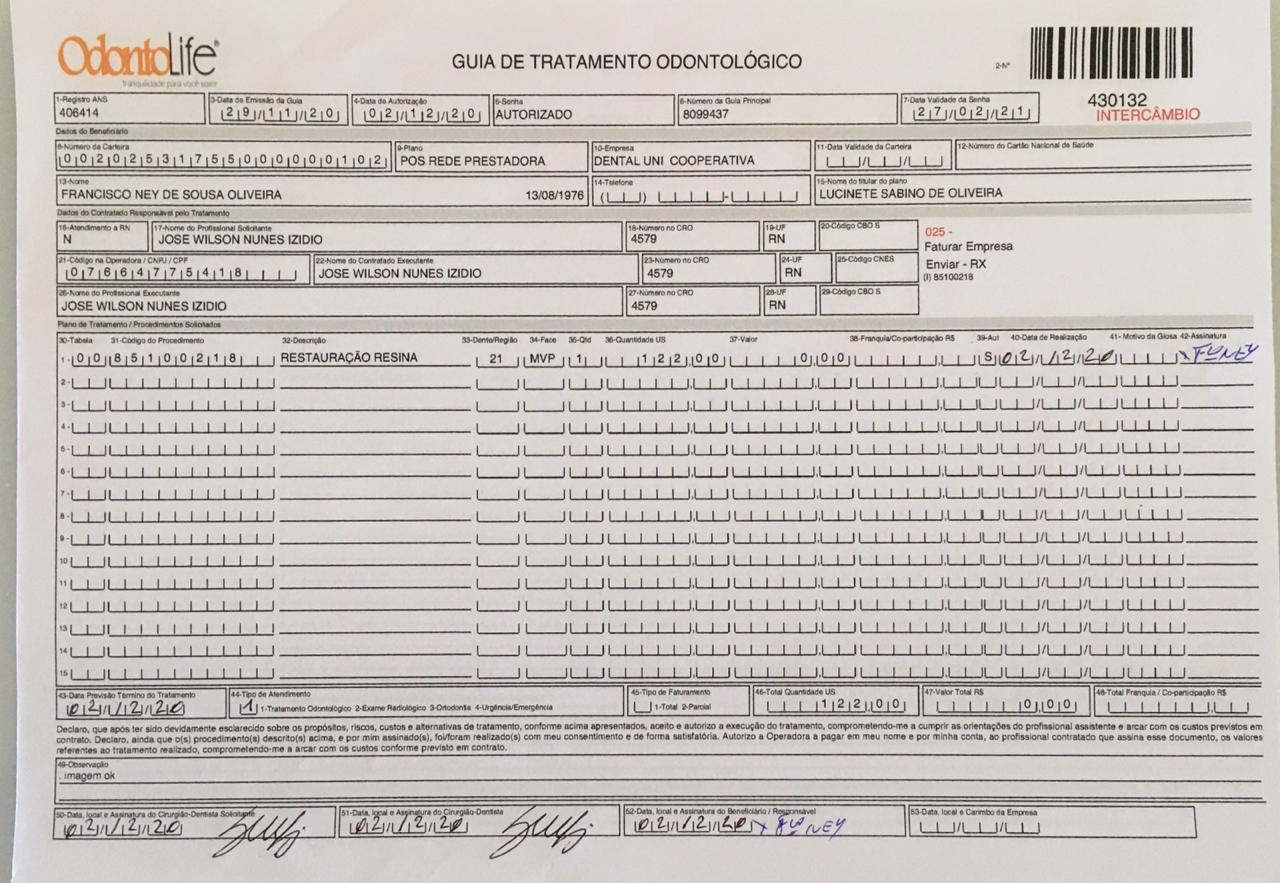 OdontoLife
tranquilidade para você sorrir
GUIA DE TRATAMENTO ODONTOLÓGICO
2-Nº
430132
INTERCÂMBIO
1-Registro ANS 3-Data de Emissão da Guia 4-Data de Autorização 5-Senha 6-Número da Guia Principal 7-Data Validade da Senha
406414 29/11/20 02/12/20 AUTORIZADO 8099437 27/02/21
Dados do Beneficiário
8-Número da Carteira 9-Plano 10-Empresa 11-Data Validade da Carteira 12-Número do Cartão Nacional de Saúde
00202531755000000102 POS REDE PRESTADORA DENTAL UNI COOPERATIVA
13-Nome 14-Telefone 15-Nome do titular do plano
FRANCISCO NEY DE SOUSA OLIVEIRA 13/08/1976 LUCINETE SABINO DE OLIVEIRA
Dados do Contratado Responsável pelo Tratamento
16-Atendimento a RN 17-Nome do Profissional Solicitante 18-Número no CRO 19-UF 20-Código CBO S
N JOSE WILSON NUNES IZIDIO 4579 RN
025 -
Faturar Empresa
Enviar - RX
(I) 85100218
21-Código na Operadora / CNPJ / CPF 22-Nome do Contratado Executante 23-Número no CRO 24-UF 25-Código CNES
07664775418 JOSE WILSON NUNES IZIDIO 4579 RN
26-Nome do Profissional Executante 27-Número no CRO 28-UF 29-Código CBO S
JOSE WILSON NUNES IZIDIO 4579 RN
Plano de Tratamento / Procedimentos Solicitados
30-Tabela 31-Código do Procedimento 32-Descrição 33-Dente/Região 34-Face 35-Qtd 36-Quantidade US 37-Valor 38-Franquia/Co-participação R$ 39-Aut 40-Data de Realização 41- Motivo da Glosa 42-Assinatura
1- 00 85100218 RESTAURAÇÃO RESINA 21 MVP 1 122,00 0,00 S 02/12/20
2-
3-
4-
5-
6-
7-
8-
9-
10
11
12
13
14
15
43-Data Previsão Término do Tratamento 44-Tipo de Atendimento 45-Tipo de Faturamento 46-Total Quantidade US 47-Valor Total R$ 48-Total Franquia / Co-participação R$
02/12/20 1 1-Tratamento Odontológico 2-Exame Radiológico 3-Ortodontia 4-Urgência/Emergência 1-Total 2-Parcial 122,00 0,00
Declaro, que após ter sido devidamente esclarecido sobre os propósitos, riscos, custos e alternativas de tratamento, conforme acima apresentados, aceito e autorizo a execução do tratamento, comprometendo-me a cumprir as orientações do profissional assistente e arcar com os custos previstos em
contrato. Declaro, ainda que o(s) procedimento(s) descrito(s) acima, e por mim assinado(s), foi/foram realizado(s) com meu consentimento e de forma satisfatória. Autorizo a Operadora a pagar em meu nome e por minha conta, ao profissional contratado que assina esse documento, os valores
referentes ao tratamento realizado, comprometendo-me a arcar com os custos conforme previsto em contrato.
49-Observação
. imagem ok
50-Data, local e Assinatura do Cirurgião-Dentista Solicitante 51-Data, local e Assinatura do Cirurgião-Dentista 52-Data, local e Assinatura do Beneficiário / Responsável 53-Data, local e Carimbo da Empresa
02/12/20 02/12/20 02/12/20